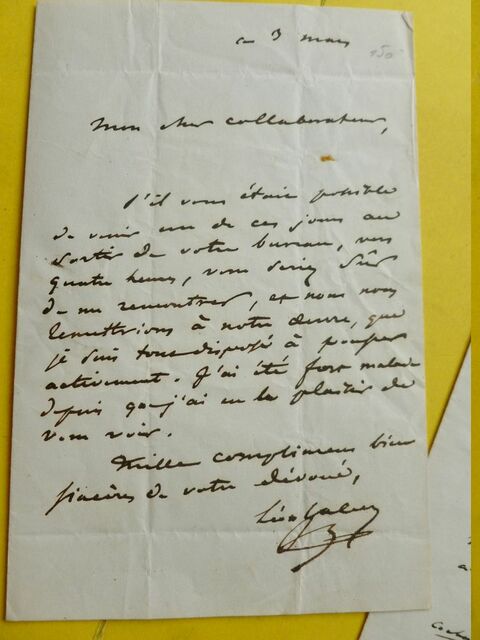 ce 3 mars
150
Mon cher collaborateur,
S'il vous était possible
de venir un de ces jours au
sortir de votre bureau, vers
quatre heures, vous seriez sûr
de me rencontrer, et nous nous
remettrions à notre œuvre, que
je suis tout disposé à pousser
activement. J'ai été fort malade
depuis que j'ai eu le plaisir de
vous voir.
Mille complimens bien
sincères de votre dévoué,
Léon